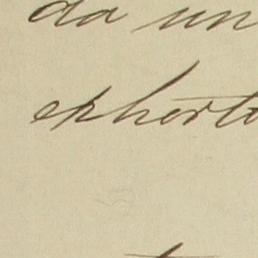 da un
exhorto